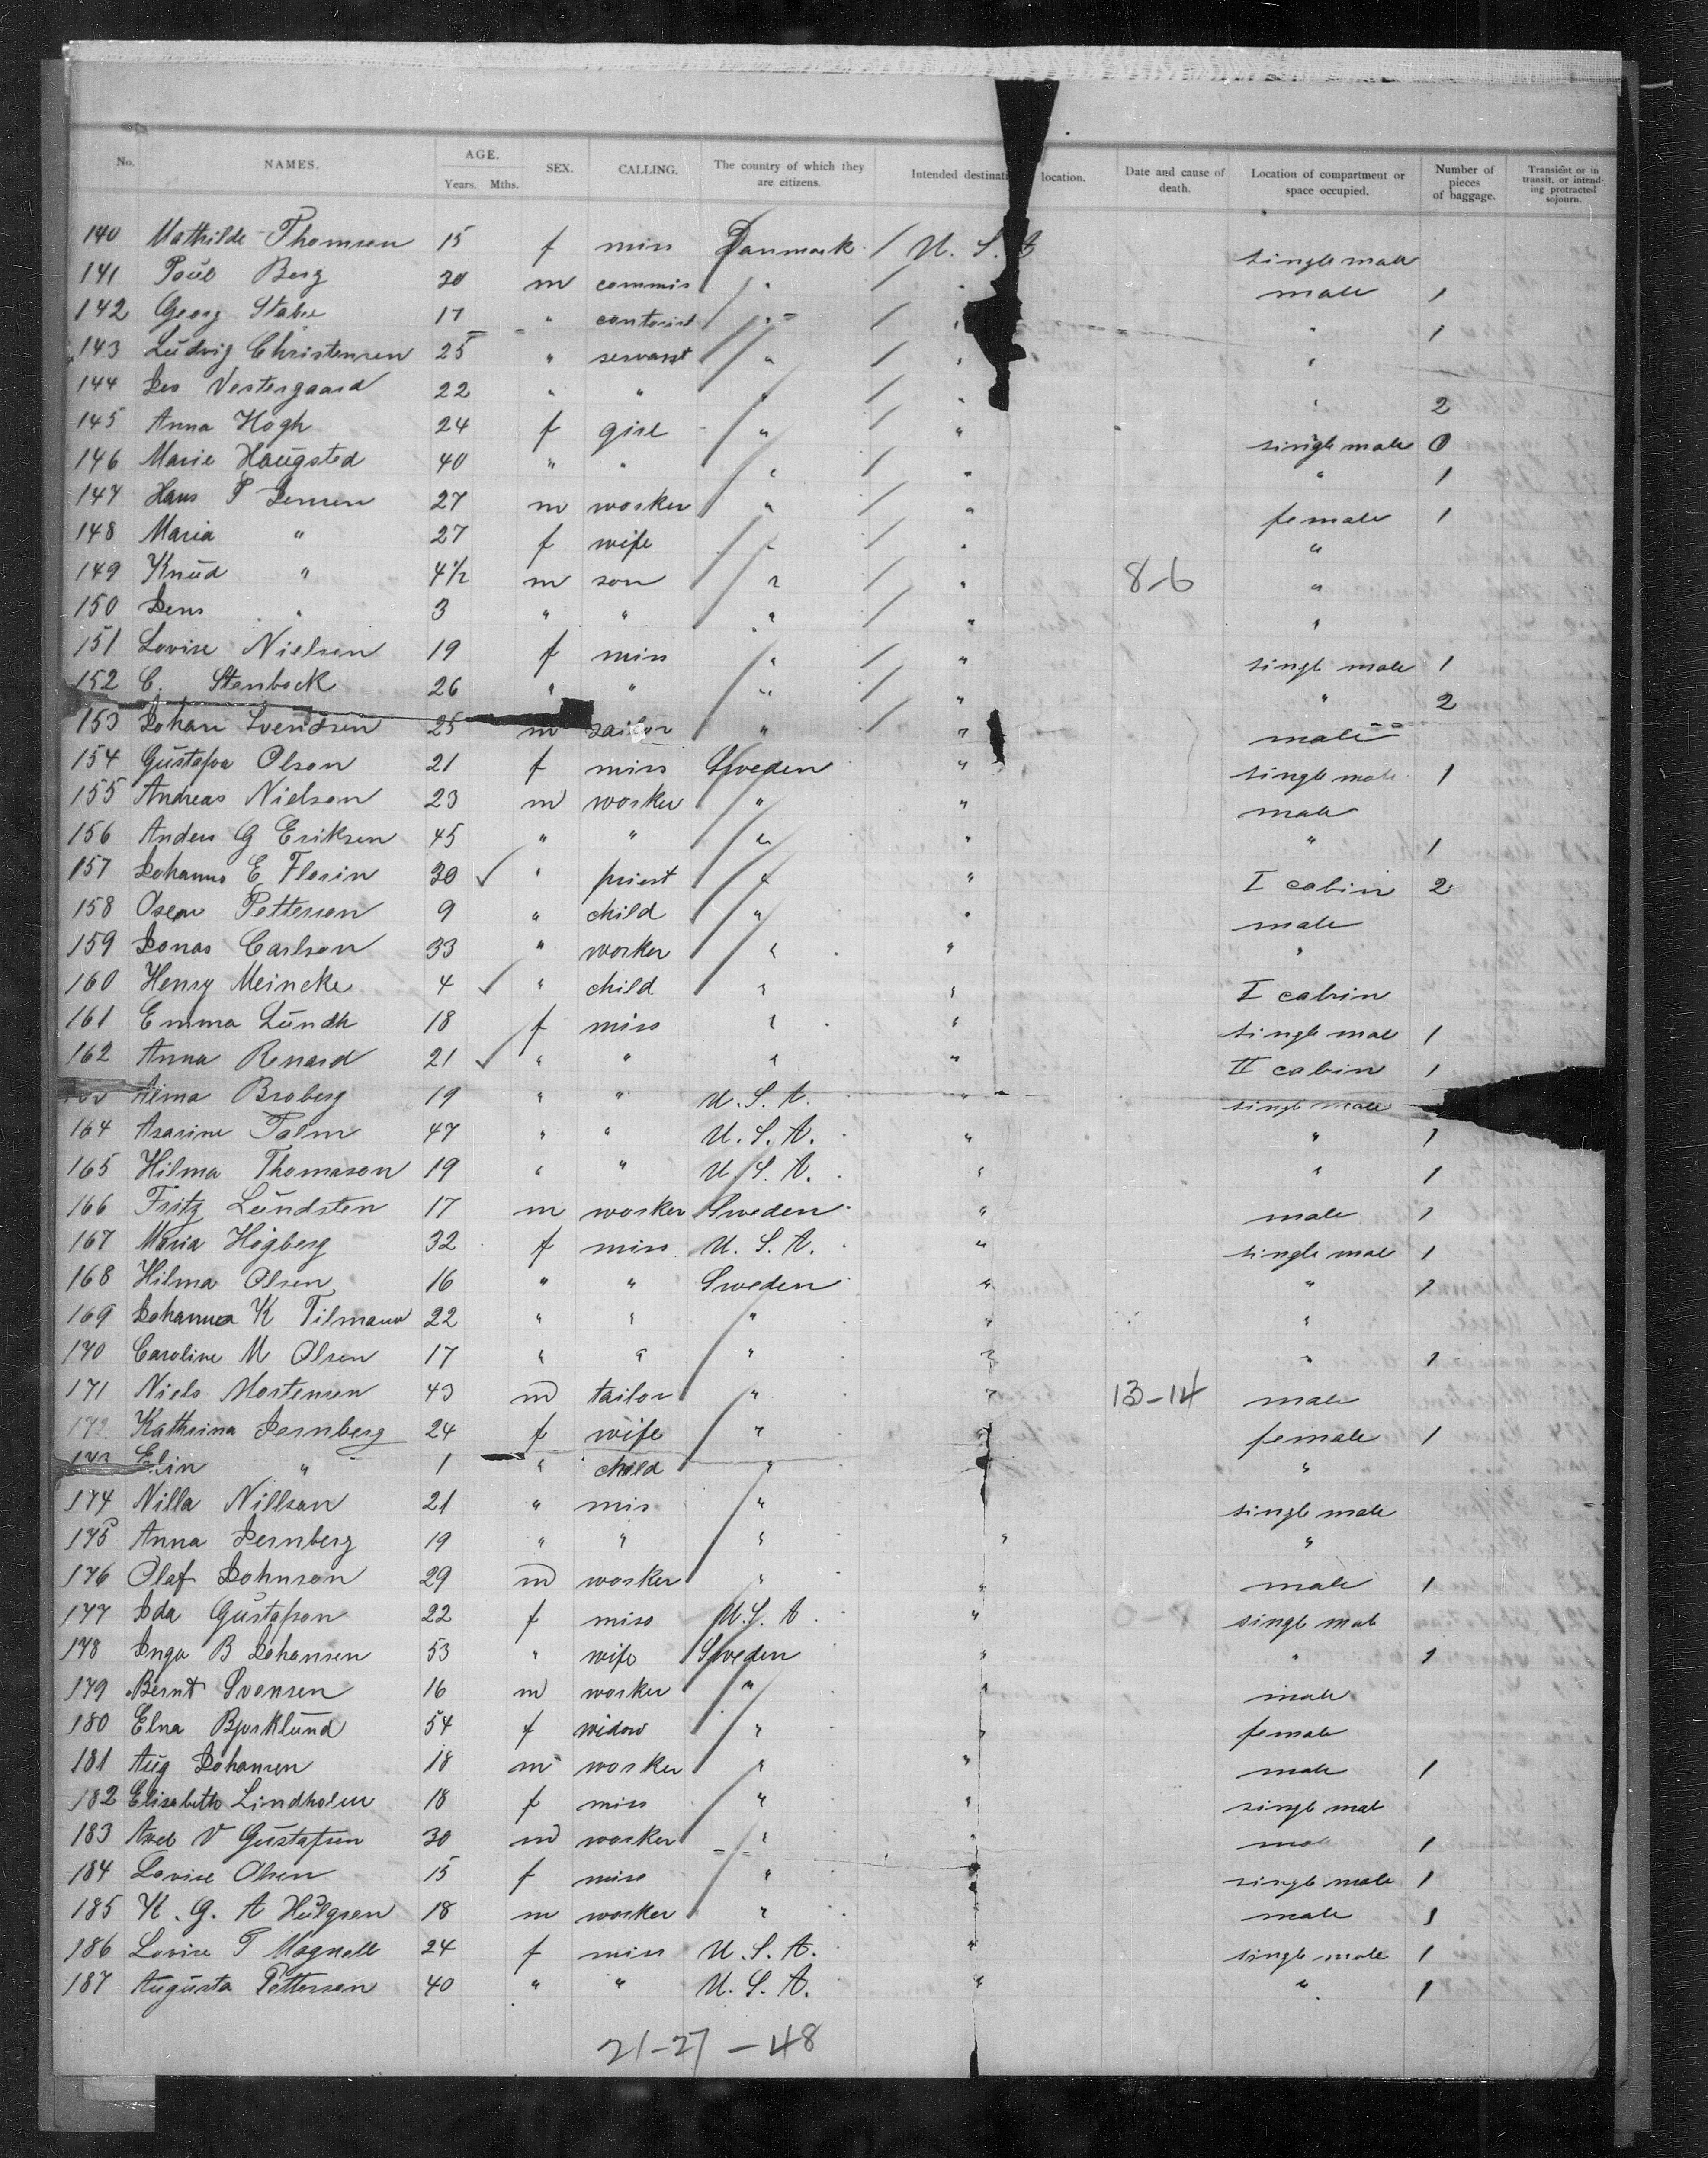 No. NAMES. AGE. Years. Mths. SEX. CALLING. The country of which they are citizens. Intended destinati location. Date and cause of death. Location of compartment or space occupied. Number of pieces of baggage. Transient or in transit, or intending protracted sojourn.
140 Mathilde Thomsen 15 f miss Danmark / U. S. A single male
141 Poul Berg 30 m commis " / " male 1
142 Georg 17 " contorist " / " " 1
143 Ludvig Christensen 25 " servant " / " "
144 Vestergaard 22 " " " / " " 2
145 Anna Hogh 24 f girl " / " single male 0
146 Marie Haugsted 40 " " " / " " 1
147 Hans P Jensen 27 m worker " / " female 1
148 Maria " 27 f wife " / " "
149 Knud " 4½ m son " / " 8-6 "
150 Jens " 3 " " " / " "
151 Lovise Nielsen 19 f miss " / " single male 1
152 C. Stenbock 26 " " " / " " 2
153 Johan Svendsen 25 m sailor " / " male
154 Gustafva Olson 21 f miss Sweden " single male 1
155 Andreas Nielson 23 m worker " " male
156 Anders G Eriksen 45 " " " " " 1
157 Johannes E Florin 30 ✓ " priest " " I cabin 2
158 Oscar Petterson 9 " child " " male
159 Jonas Carlson 33 " worker " " "
160 Henry Meincke 4 ✓ " child " " I cabin
161 Emma Lundh 18 f miss " " single male 1
162 Anna Renard 21 ✓ " " " " II cabin 1
Alma Broberg 19 " " U. S. A. " single male
164 Asarine Palm 47 " " U. S. A. " " 1
165 Hilma Thomason 19 " " U. S. A. " " 1
166 Fritz Lundsten 17 m worker Sweden " male 1
167 Maria Högberg 32 f miss U. S. A. " single male 1
168 Hilma Olsen 16 " " Sweden " " 1
169 Johanna K Tilmann 22 " " " " "
170 Caroline M Olsen 17 " " " " " 1
171 Niels Mortensen 43 m tailor " " 13-14 male
172 Kathrina Jernberg 24 f wife " " female 1
173 Elin " 1 " child " " "
174 Nilla Nillson 21 " mis " single male
175 Anna Jernberg 19 " " " " "
176 Olaf Johnson 29 m worker " " male 1
177 Ida Gustafson 22 f miss U. S. A " single male
178 Inga B Johansen 53 " wife Sweden " " 1
179 Bernt Svensen 16 m worker " " male
180 Elna Bjorklund 54 f widow " " female
181 Aug Johansen 18 m worker " " male 1
182 Elisabeth Lindholm 18 f miss " " single male
183 Axel V Gustafsen 30 m worker " " male 1
184 Lovise Olsen 15 f miss " " single male 1
185 K. G. A Hulgren 18 m worker " " male 1
186 Lovise T Magnell 24 f miss U. S. A. " single male 1
187 Augusta Petterson 40 " " U. S. A. " " 1
21-27-48